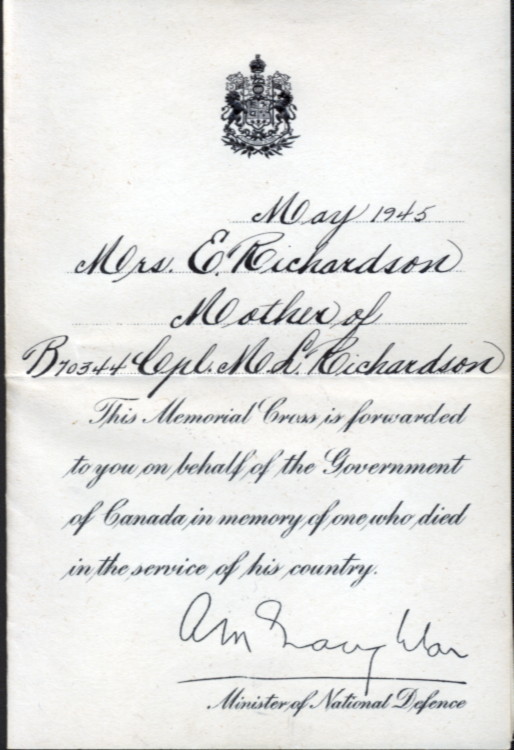 May 1945
Mrs. E. Richardson
Mother of
B70344 Cpl. M.L. Richardson
This Memorial Cross is forwarded
to you on behalf of the Government
of Canada in memory of one who died
in the service of his country.
Minister of National Defence